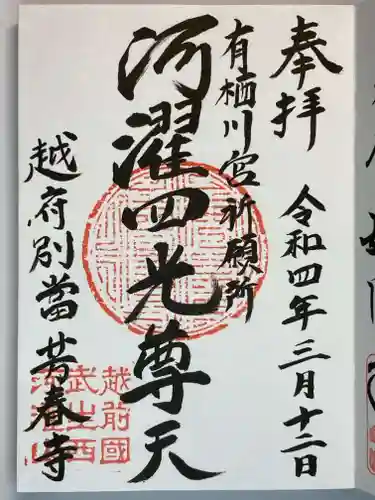 奉拝
令和四年三月十二日
有栖川宮祈願所
河濯四光尊天
越府別當芳春寺
越前國
武生西